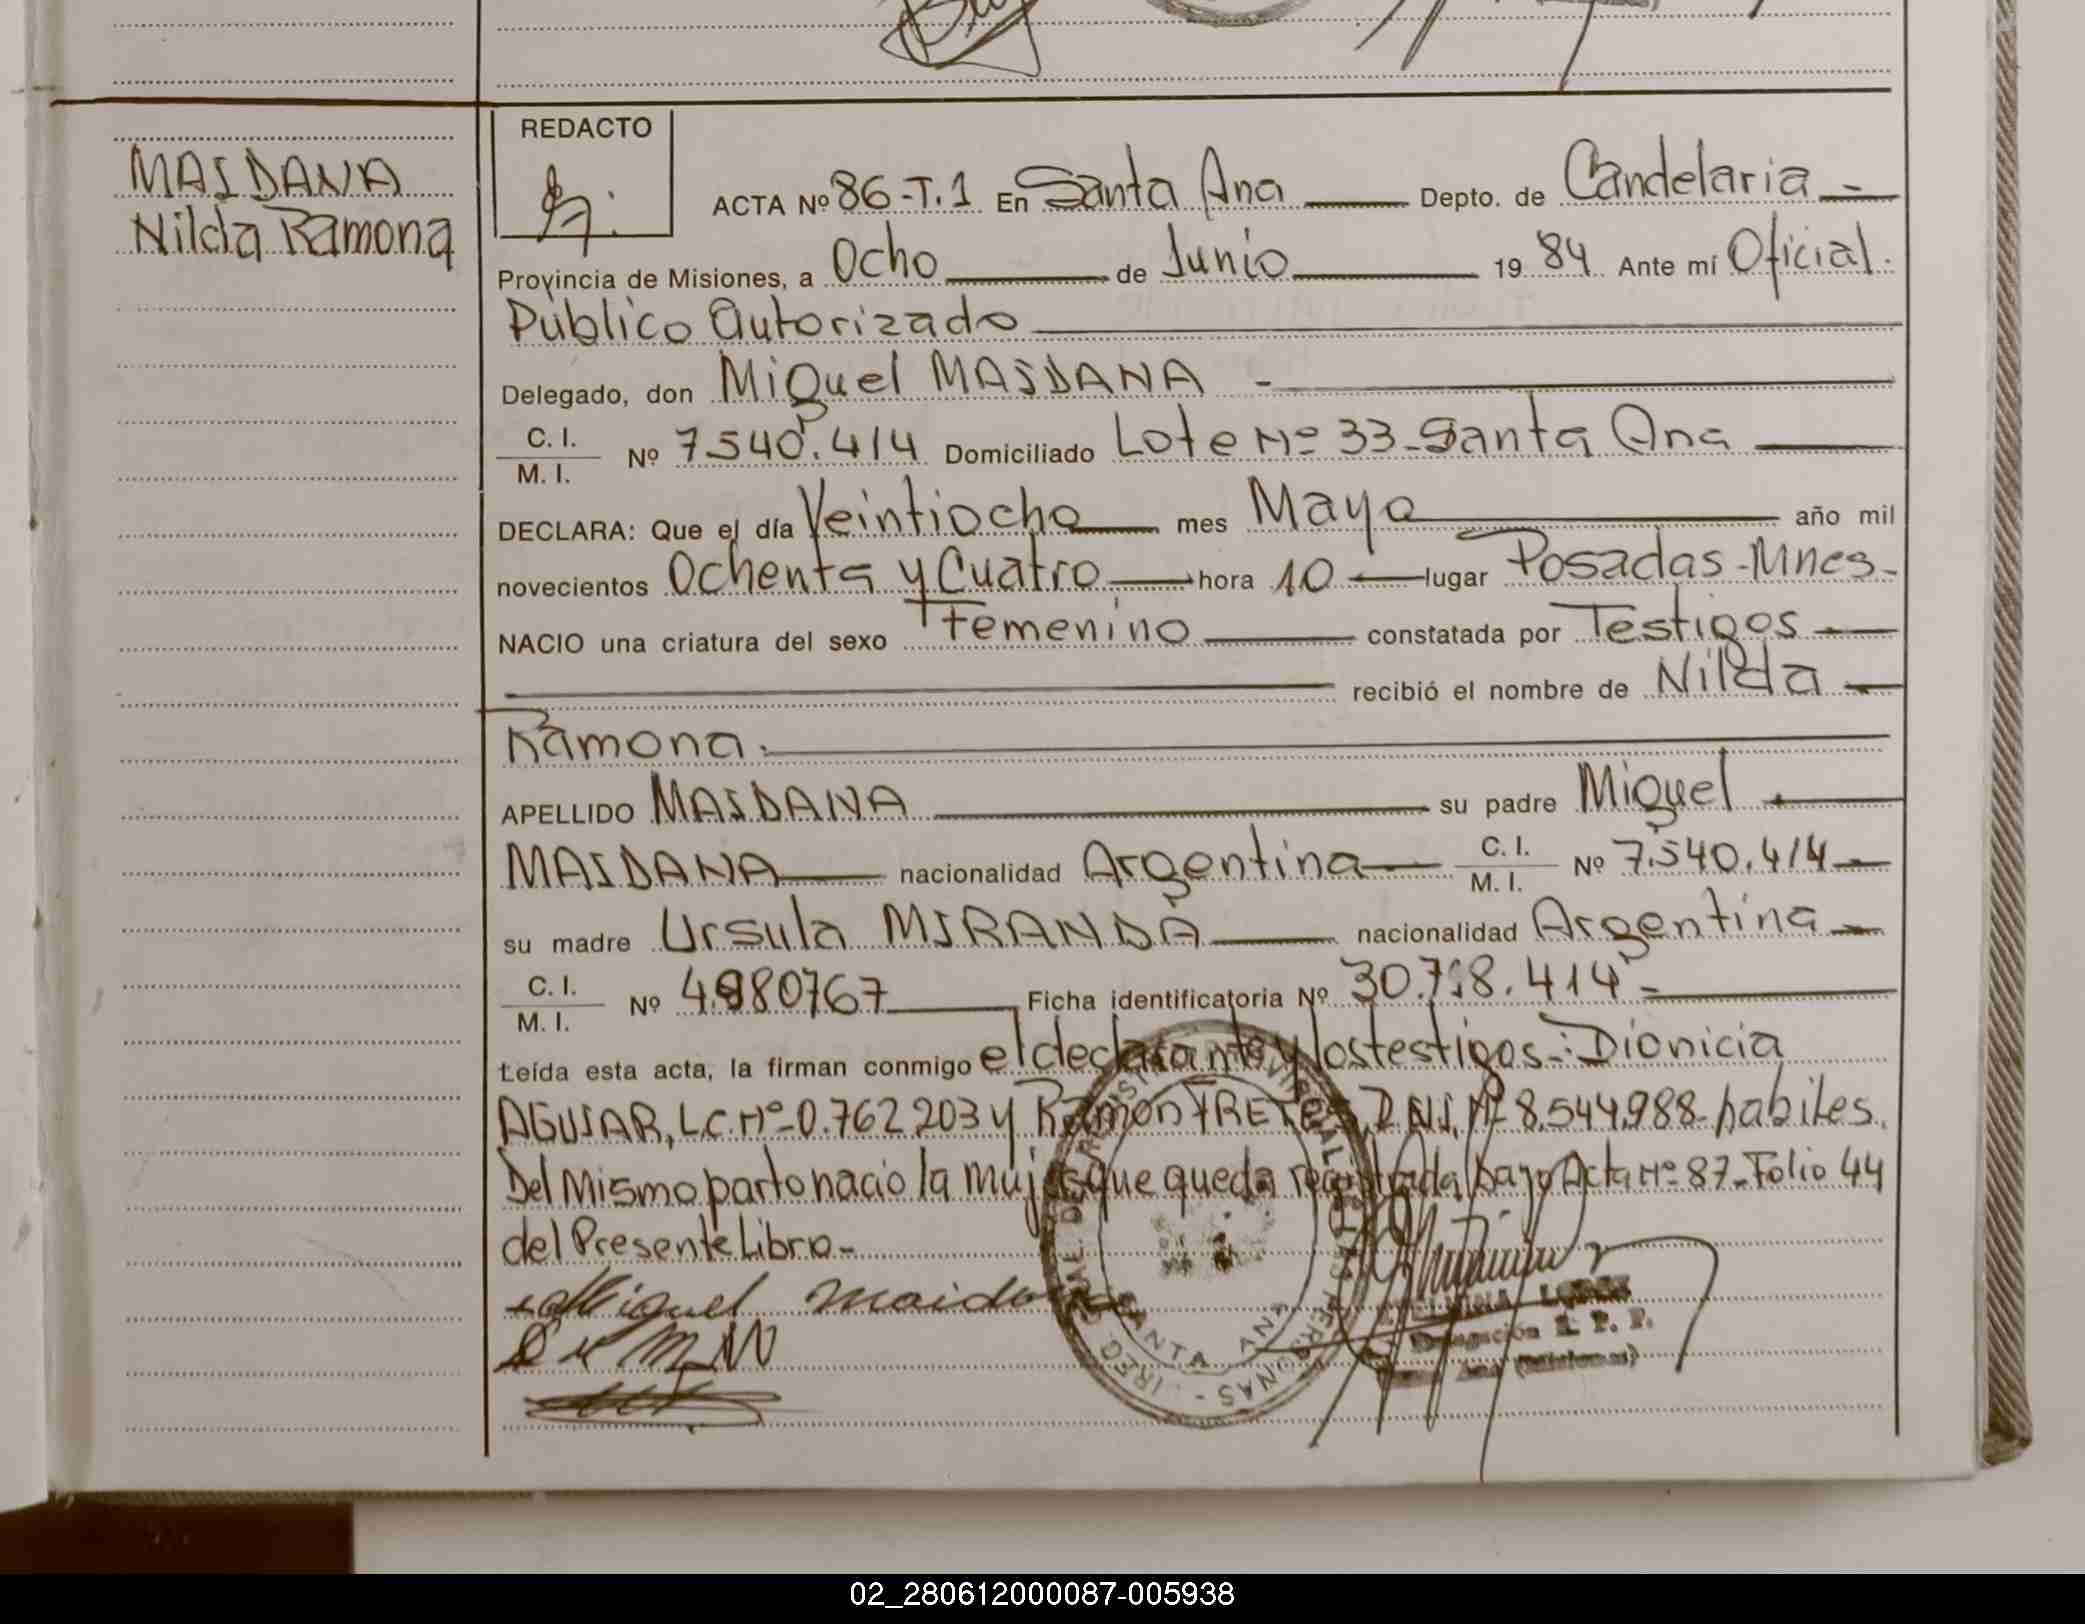 MAIDANA
Nilda Ramona
REDACTO
ACTA Nº 86-T.1 En Santa Ana Depto. de Candelaria -
Provincia de Misiones, a Ocho de Junio 19 84 Ante mí Oficial.
Público autorizado
Delegado, don Miguel MAIDANA -
C. I.
M. I.
Nº 7.540.414 Domiciliado Lote Nº 33-Santa Ana
DECLARA: Que el día Veintiocho mes Mayo año mil
novecientos Ochenta y Cuatro hora 10 lugar Posadas-Mnes-
NACIO una criatura del sexo Femenino constatada por Testigos
recibió el nombre de Nilda
Ramona.
APELLIDO MAIDANA su padre Miguel
MAIDANA nacionalidad Argentina C. I.
M. I.
Nº 7.540.414
su madre Ursula MIRANDA nacionalidad Argentina
C. I.
M. I.
Nº 4.980767 Ficha identificatoria Nº 30.718.414-
Leída esta acta, la firman conmigo el declarante y los testigos-: Dionicia
AGUIAR, L.C. Nº-0.762.203 y Ramon FRETES, D.N.I. Nº 8.544.988-habiles.
Del Mismo parto nacio la mujer que queda registrada bajo Acta Nº 87-Folio 44
del Presente Libro-
Miguel Maidana
SANTA ANA
02_280612000087-005938